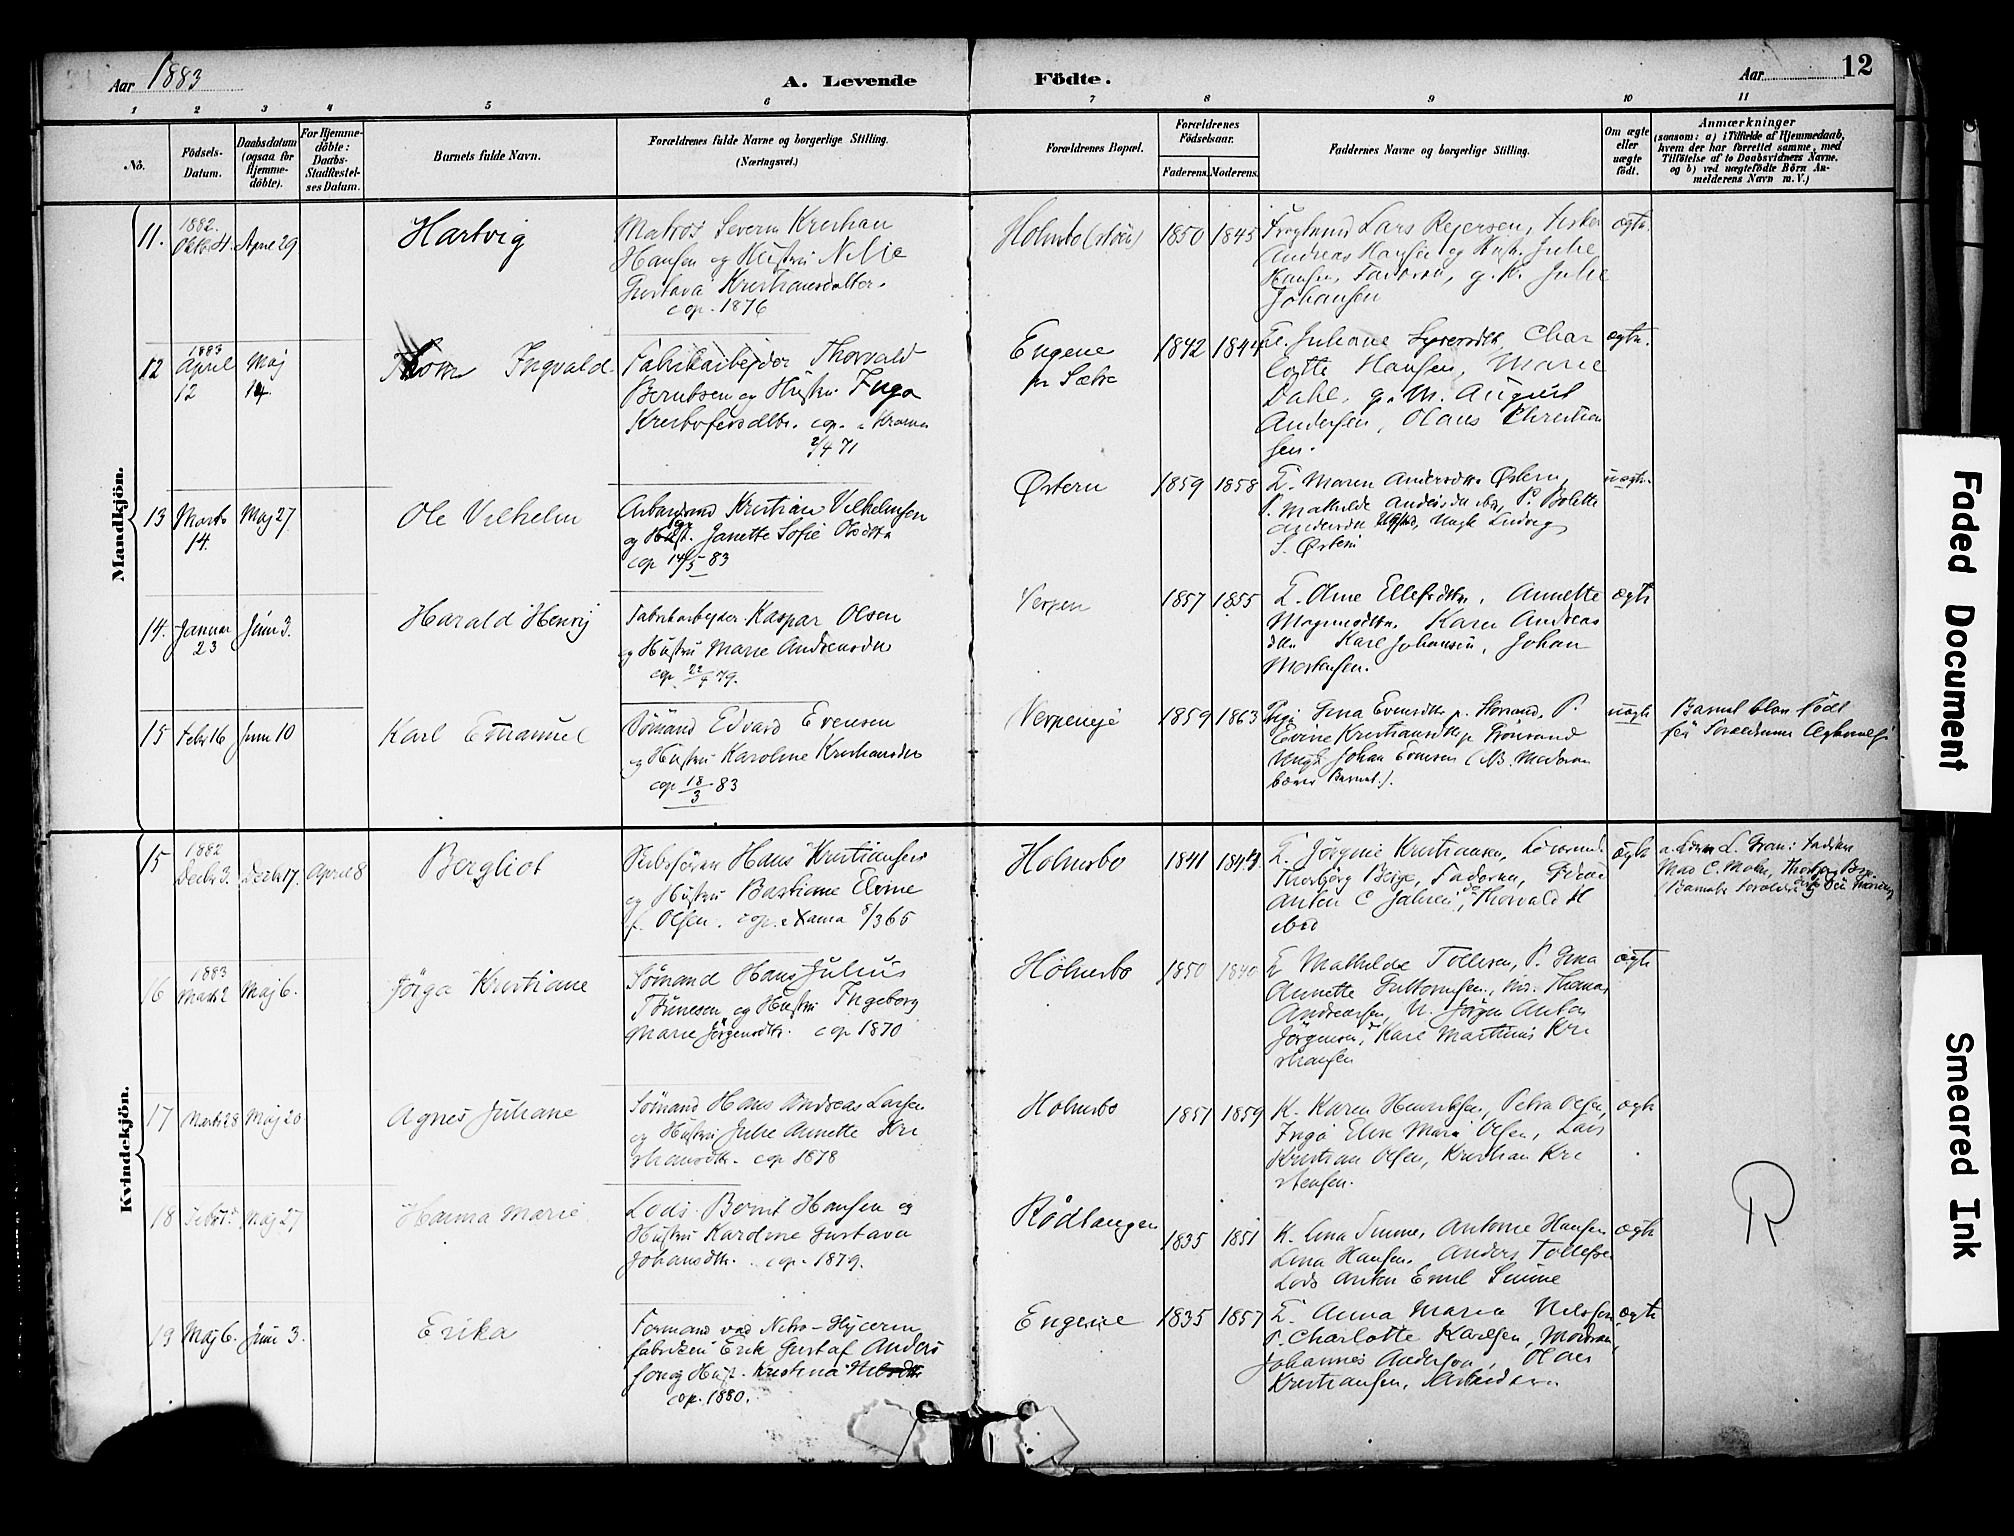 Aar 1883
A. Levende
Födte.
Aar
12
1 2 3 4 5 6 7 8 9 10 11
No.
Födsels-
Datum.
Daabsdatum
(ogsaa for
Hjemme-
döbte).
For Hjemme-
döbte:
Daabs-
Stadfæstel-
ses Datum.
Barnets fulde Navn.
Forældrenes fulde Navne og borgerlige Stilling.
(Næringsvei.)
Forældrenes Bopæl.
Forældrenes
Födselsaar.
Faderens. Moderens.
Faddernes Navne og borgerlige Stilling.
Om ægte
eller
uægte
födt.
Anmærkninger
(saasom: a) i Tilfælde af Hjemmedaab,
hvem der har forrettet samme, med
Tilföielse af to Daabsvidners Navne.
og b) ved uægtefödte Börn An-
melderens Navn m. V.)
Mandkjön.
11.
1882.
Oktbr 4.
April 29
Hartvig
Matros Severin Kristian
Hansen og Hustru Nelle
Gustava Kristiansdatter.
cop. 1876
Holmsbo
1850 1845
Lars Rejersen, Fisker
Andreas Hansen og Hust. Julie
Hansen, Faderen, g. K. Julie
Johansen
ægte.
12
1883
April
12
Maj
14.
Thom Ingvald.
Fabrikarbejder Thorvald
Berntsen og Hustru Inga
Kristofersdtr. cop. i Kroken
2/4 71
Engene
pr Sætre
1842 1844
E. Juliane Syversdtr, Char
lotte Hansen, Marie
Dahl, g. M. August
Andersen, Olaus Christian
sen.
ægte.
13
Marts
14.
Maj 27
Ole Vilhelm
Arbmand Kristian Vilhelmsen
og Hust. Janette Sofie Olsdtr
cop 14/5 83
Østern
1859 1858
E. Maren Andersdtr Østern,
P. Mathilde Andersdtr ibd, P. Bolette
Andersdtr, Ungk Ludvig
S. Østern
uægte.
14.
Januar
23
Juni 3.
Harald Henrij
Fabrikarbejder Kaspar Olsen
og Hustru Marie Andreasdtr
cop. 22/4 79.
Verpen
1857 1855
E. Oline Ellefsdtr, Annette
Magnusdtr. Karen Andreas
dtr. Karl Johansen, Johan
Mortensen.
ægte
15
Febr 16
Juni 10
Karl Emanuel
Sömand Edvard Evensen
og Hustru Karoline Kristiansdtr
cop 18/3 83
Verpeneje
1859 1863
Pige Gina Evensdtr p. Storsand, P.
Edvine Kristiansdtr p Grönsand
Ungk Johan Evensen (NB. Moderen
bærer Barnet.).
uægte
Barnet blev födt
för Forældrenes Ægtevielse
Kvindekjön.
15
1882
Decbr 3.
Decbr 17.
April 8
Bergliot
Skibsförer Hans Kristiansen
og Hustru Bastiane Elvine
f. Olsen. cop. 8/3 65
Holmsbo
1841 1844
E. Jörgine Kristiansen,
Thorbjörg Berge, Faderen,
Anton C Johnsen, Thorvald H
ibid
ægte
16
1883
Marts 2
Maj 6.
Jörga Kristiane
Sömand Hans Julius
Tönnesen og Hustru Ingeborg
Marie Jörgensdtr. cop 1870
Holmsbo
1850 1840
E Mathilde Tollesen, P. Gina
Annette Guttormsen, M. Thomas
Andreassen, U. Jörgen Anton
Jörgensen, Karl Martinius Kri
stiansen
ægte
17
Marts 28
Maj 20
Agnes Juliane
Sömand Hans Andreas Larsen
og Hustru Julie Annette Kri
stiansdtr. cop 1878
Holmsbo
1851 1859
K. Karen Henriksen, Petra Olsen,
Inga Elise Marie Olsen, Lars
Kristian Olsen, Kristian Kri
stensen.
ægte
18
Maj 27
Hanna Marie
Lods Bernt Hansen og
Hustru Karoline Gustava
Johansdtr. cop. 1879.
Rödtangen
1835 1851
K. Lina Simme, Antonie Hansen
Lina Hansen, Anders Tollefsen
Lods Anton Emil Simme
ægte
R
19
Maj 6.
Juni 3.
Erika
Formand ved Nitro-Glycerin
fabriken Erik Gustaf Anders
son og Hust. Kristina
cop. 1880.
Engene
1835 1857
E. Anna Maria Nilssen,
P. Charlotte Karlsen, Moderen,
Johannes Anderson, Olaus
Kristiansen, Arbeidere.
ægte
Faded Document
Smeared Ink